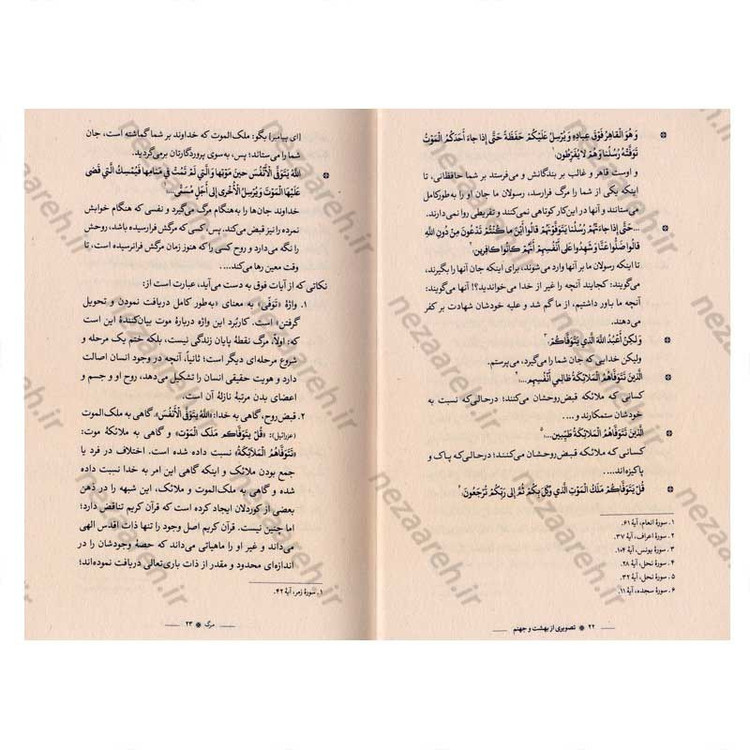 وَ هُوَ الْقاهِرُ فَوْقَ عِبادِهِ وَ يُرْسِلُ عَلَيْكُمْ حَفَظَةً حَتَّى إِذا جاءَ أَحَدَكُمُ الْمَوْتُ
تَوَفَّتْهُ رُسُلُنا وَ هُمْ لا يُفَرِّطُونَ؛
و اوست قاهر و غالب بر بندگانش و می‌فرستد بر شما حافظانی، تا
اینکه یکی از شما را مرگ فرارسد، رسولان ما جان او را به‌طورکامل
می‌ستانند و آنها در این‌کار کوتاهی نمی‌کنند و تفریطی روا نمی‌دارند.
...حَتَّى إِذا جاءَتْهُمْ رُسُلُنا يَتَوَفَّوْنَهُمْ قالُوا أَيْنَ ما كُنْتُمْ تَدْعُونَ مِنْ دُونِ اللَّهِ
قالُوا ضَلُّوا عَنَّا وَ شَهِدُوا عَلى أَنْفُسِهِمْ أَنَّهُمْ كانُوا كافِرِينَ؛۲
تا اینکه رسولان ما بر آنها وارد می‌شوند، برای اینکه جان آنها را بگیرند،
می‌گویند: کجایند آنچه را غیر از خدا می‌خواندید؟! آنها می‌گویند:
آنچه ما باور داشتیم، از ما گم شد و علیه خودشان شهادت بر کفر
می‌دهند.
وَ لكِنْ أَعْبُدُ اللَّهَ الَّذِي يَتَوَفَّاكُمْ؛۳
ولیکن خدایی که جان شما را می‌گیرد، می‌پرستم.
الَّذِينَ تَتَوَفَّاهُمُ الْمَلائِكَةُ ظالِمِي أَنْفُسِهِمْ...؛۴
کسانی که ملائکه قبض‌روحشان می‌کنند؛ درحالی‌که نسبت به
خودشان ستمکارند و....
الَّذِينَ تَتَوَفَّاهُمُ الْمَلائِكَةُ طَيِّبِينَ...؛۵
کسانی که ملائکه قبض‌روحشان می‌کنند؛ درحالی‌که پاک و
پاکیزه‌اند....
قُلْ يَتَوَفَّاكُمْ مَلَكُ الْمَوْتِ الَّذِي وُكِّلَ بِكُمْ ثُمَّ إِلى رَبِّكُمْ تُرْجَعُونَ؛۶
۱. سورهٔ انعام، آیهٔ ۶۱.
۲. سورهٔ اعراف، آیهٔ ۳۷.
۳. سورهٔ یونس، آیهٔ ۱۰۴.
۴. سورهٔ نحل، آیهٔ ۲۸.
۵. سورهٔ نحل، آیهٔ ۳۲.
۶. سورهٔ سجده، آیهٔ ۱۱.
۲۲ * تصویری از بهشت و جهنم
[ای پیامبر] بگو: ملک‌الموت که خداوند بر شما گماشته است، جان
شما را می‌ستاند؛ پس، به‌سوی پروردگارتان برمی‌گردید.
اللَّهُ يَتَوَفَّى الْأَنْفُسَ حِينَ مَوْتِها وَ الَّتِي لَمْ تَمُتْ فِي مَنامِها فَيُمْسِكُ الَّتِي قَضى
عَلَيْهَا الْمَوْتَ وَ يُرْسِلُ الْأُخْرى إِلى أَجَلٍ مُسَمًّى؛۱
خداوند جان‌ها را به‌هنگام مرگ می‌گیرد و نفسی که هنگام خوابش
نمرده را نیز قبض می‌کند. پس، کسی که مرگش فرارسیده باشد، روحش
را نگه می‌دارد و روح کسی را که هنوز زمان مرگش فرانرسیده است، تا
وقت معین رها می‌کند....
نکاتی که از آیات فوق به دست می‌آید، عبارت است از:
۱. واژهٔ «تَوَفّی» به معنای «به‌طور کامل دریافت نمودن و تحویل
گرفتن» است. کاربُرد این واژه دربارهٔ موت بیان‌کنندهٔ این است
که: اولاً، مرگ نقطهٔ پایان زندگی نیست، بلکه ختم یک مرحله و
شروع مرحله‌ای دیگر است؛ ثانیاً، آنچه در وجود انسان اصالت
دارد و هویت حقیقی انسان را تشکیل می‌دهد، روح او و جسم و
اعضای بدن مرتبهٔ نازلهٔ آن است.
۲. قبض‌روح، گاهی به خدا: «اللَّهُ يَتَوَفَّى الْأَنْفُسَ»، گاهی به ملک‌الموت
(عزرائیل): «قُلْ يَتَوَفَّاكُمْ مَلَكُ الْمَوْتِ» و گاهی به ملائکهٔ موت:
«تَتَوَفَّاهُمُ الْمَلائِكَةُ» نسبت داده شده است. اختلاف در فرد یا
جمع بودن ملائک و اینکه گاهی این امر به خدا نسبت داده
شده و گاهی به ملک‌الموت و ملائک، این شبهه را در ذهن
بعضی از کوردلان ایجاد کرده است که قرآن کریم تناقض دارد؛
اما چنین نیست. قرآن کریم اصل وجود را تنها ذات اقدس الهی
می‌داند و غیر او را ماهیاتی می‌داند که حصهٔ وجودشان را در
اندازه‌ای محدود و مقدر از ذات باری‌تعالی دریافت نموده‌اند؛
۱. سورهٔ زمر، آیهٔ ۴۲.
مرگ * ۲۳
nezaareh.ir
nezaareh.ir
nezaareh.ir
nezaareh.ir
nezaareh.ir
nezaareh.ir